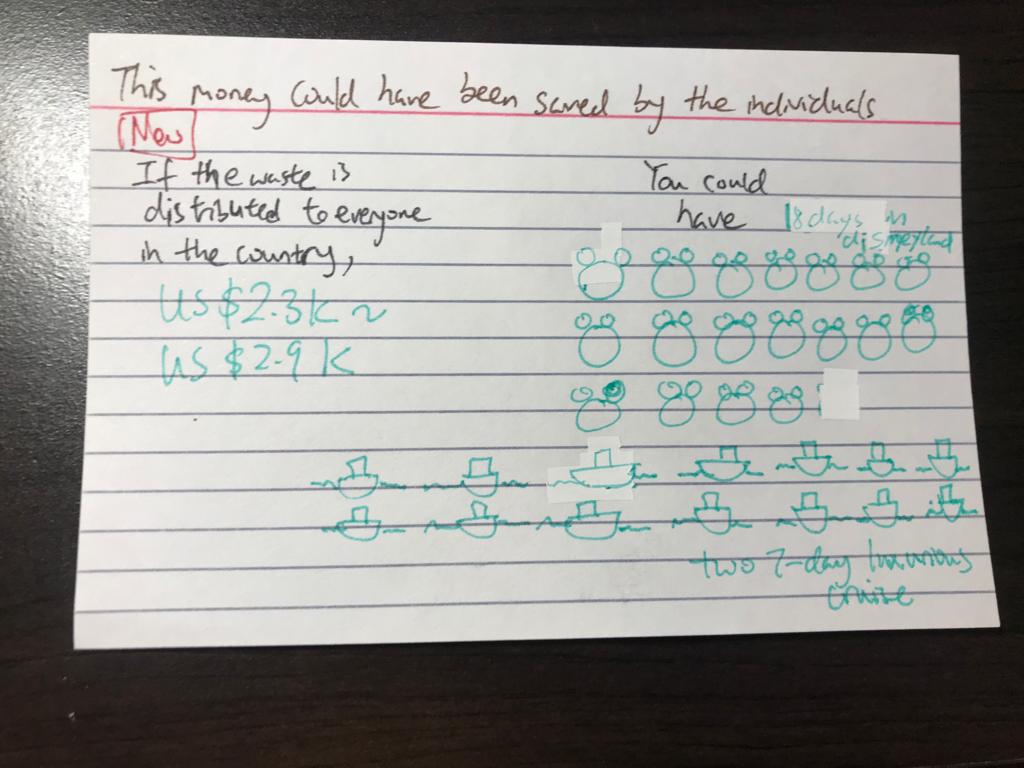 This money could have been saved by the individuals
New
If the waste is
distributed to everyone
in the country,
US $2.3k ~
US $2.9k
You could
have 18 days in
disneyland
two 7-day luxurious
cruise